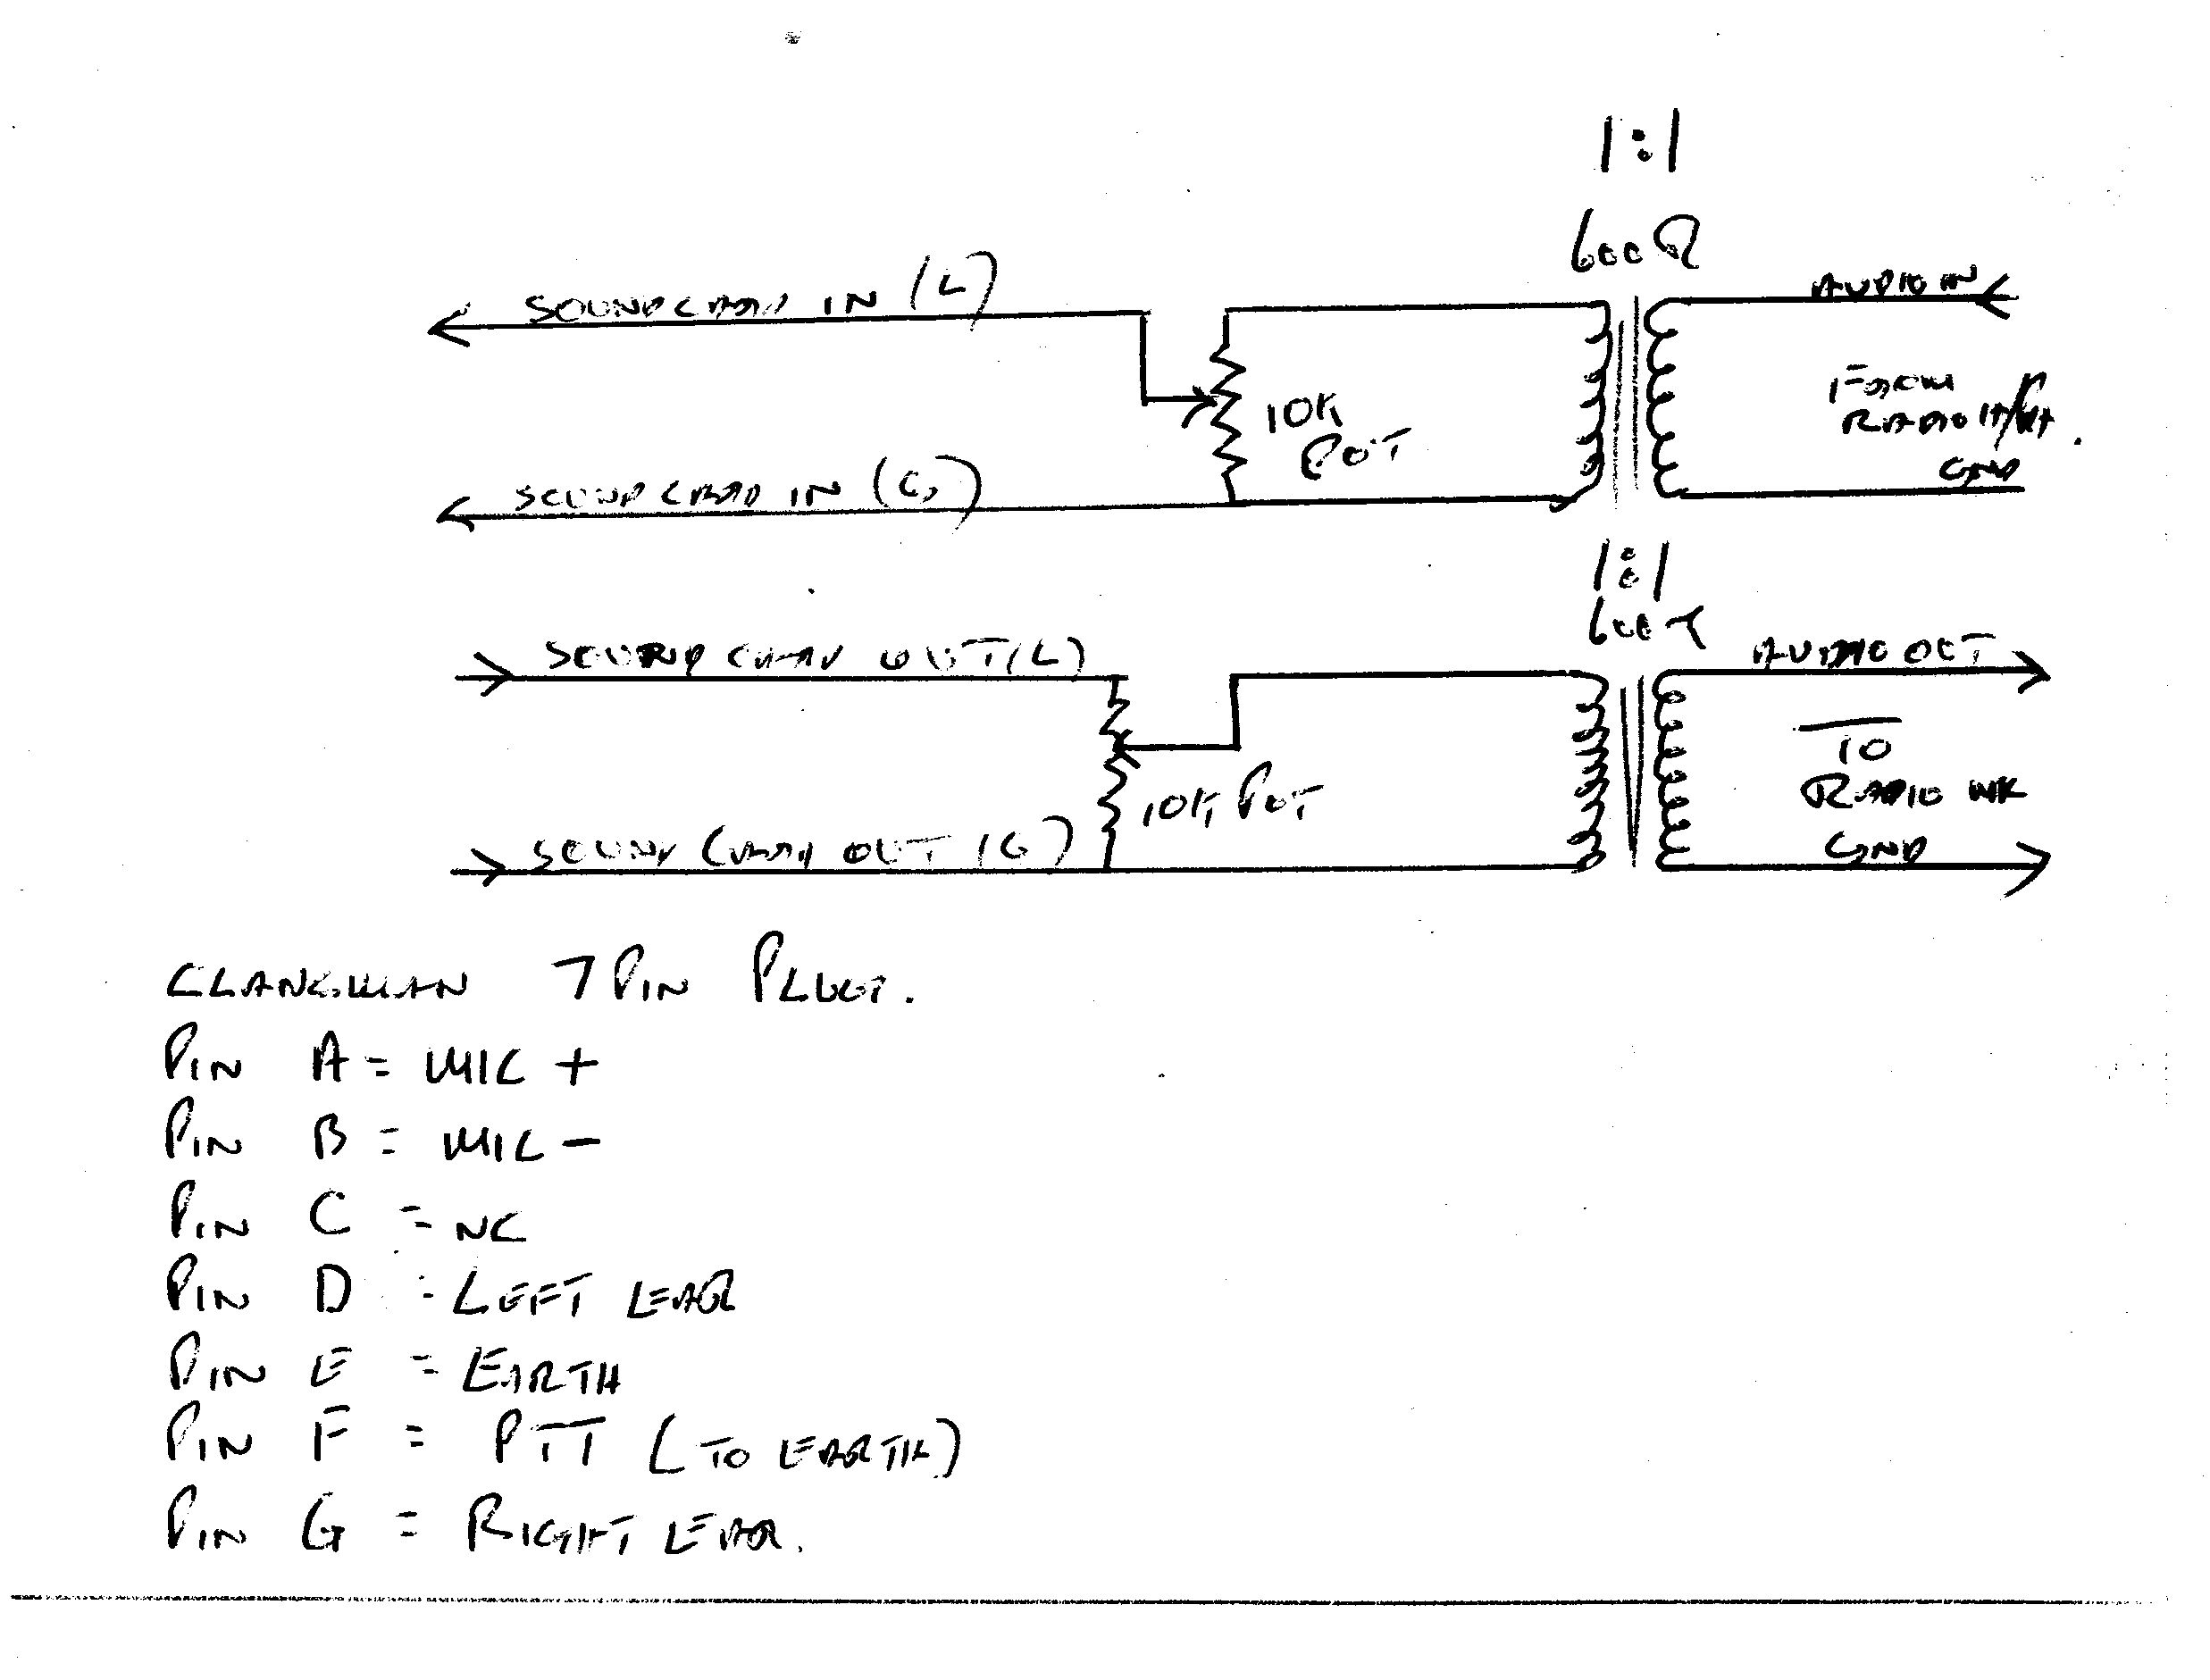 1:1
600Ω
SOUND CARD IN (L)
AUDIO IN
FROM
RADIO
10K
POT
SOUND CARD IN (G)
GND
1:1
600
SOUND CARD OUT (L)
AUDIO OUT
TO
RADIO
10K POT
SOUND CARD OUT (G)
GND
CLANSMAN 7 PIN PLUG.
PIN A = MIC +
PIN B = MIC -
PIN C = NC
PIN D = LEFT
PIN E = EARTH
PIN F = PTT (TO EARTH)
PIN G = RIGHT